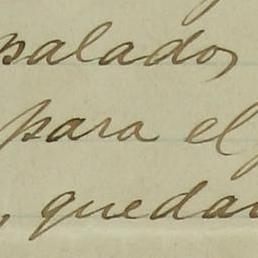 palados
para el
, quedan